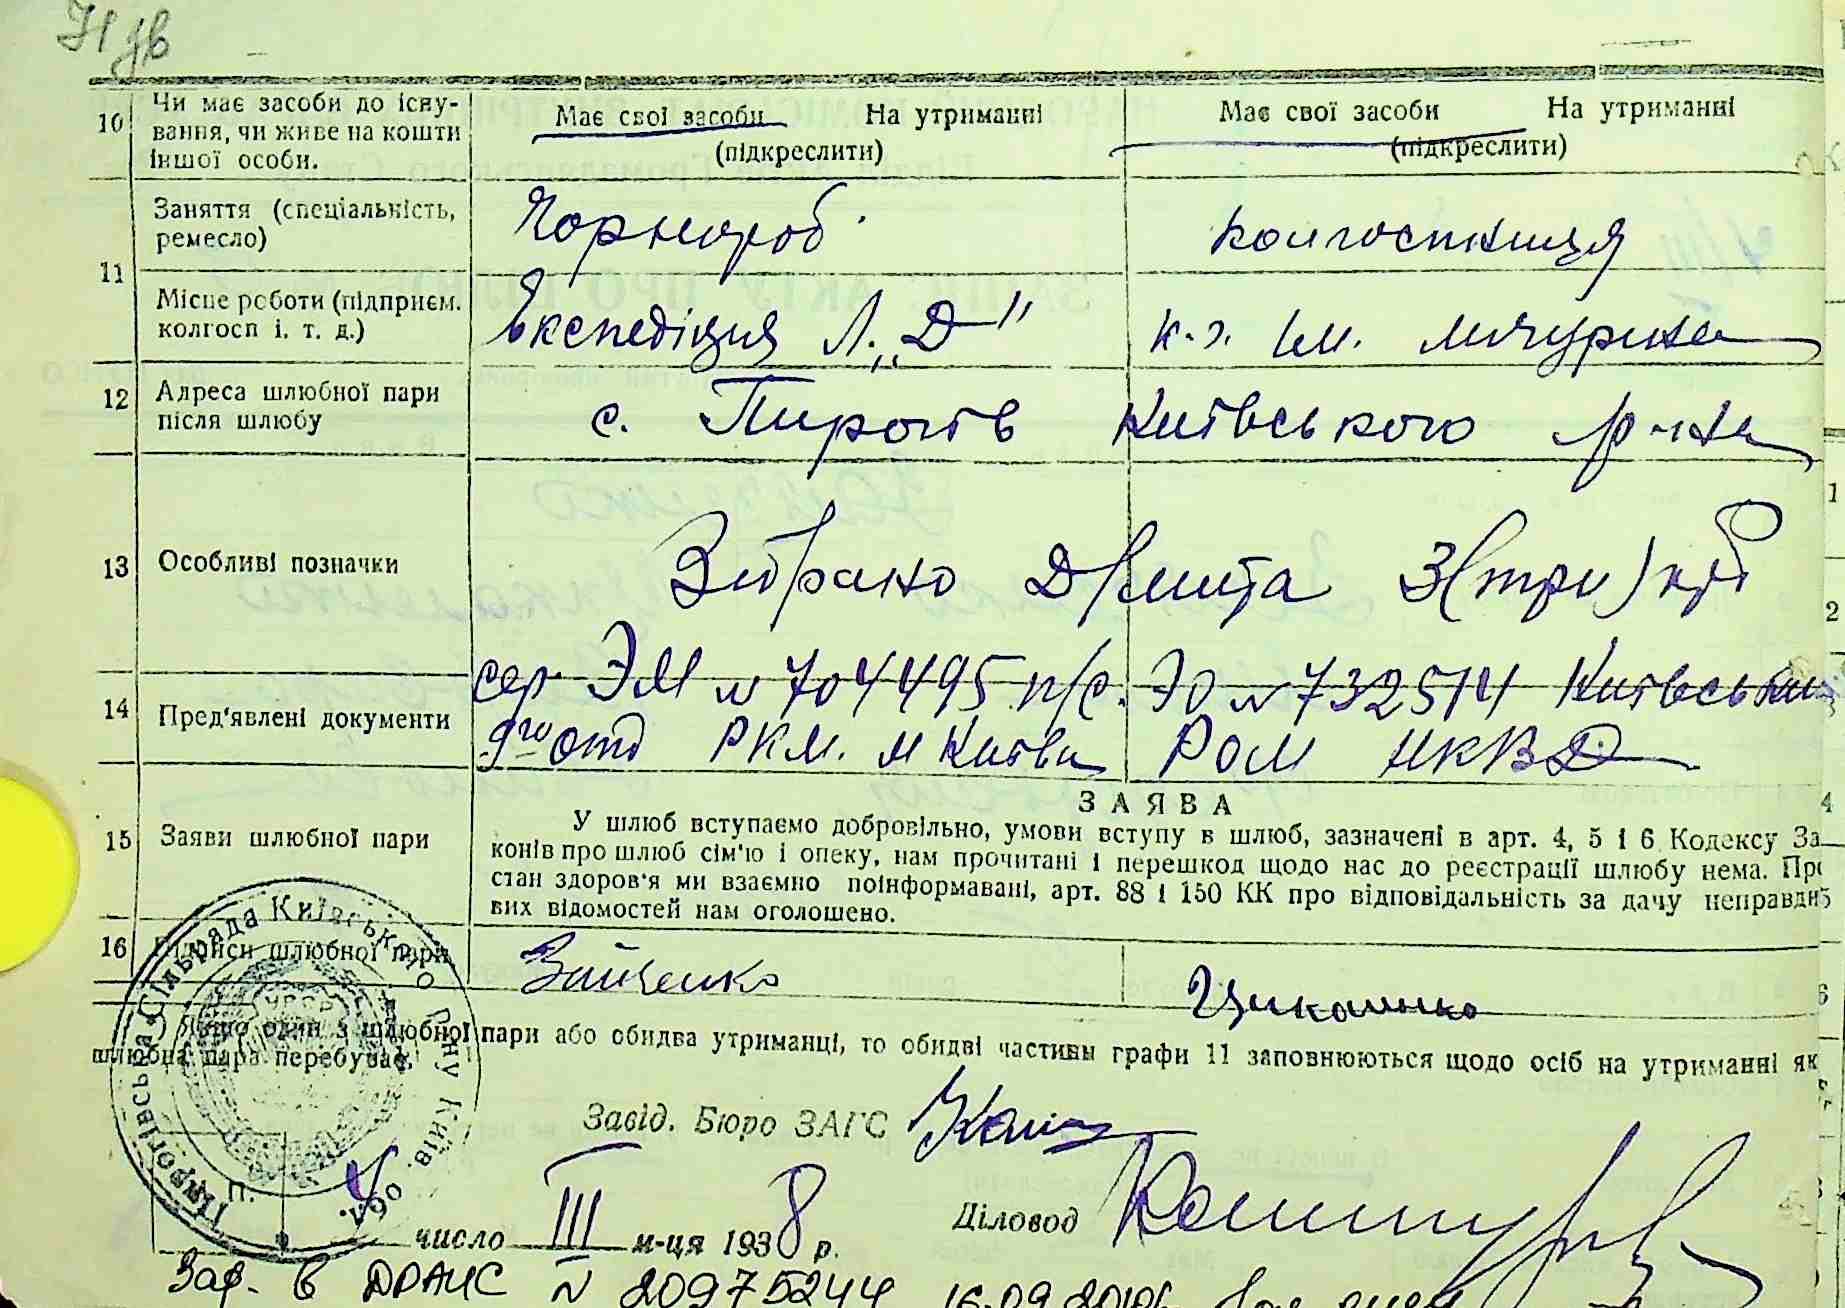 10 Чи має засоби до існу-
вання, чи живе на кошти
іншої особи.
Має свої засоби На утриманні
(підкреслити)
Має свої засоби На утриманні
(підкреслити)
11 Заняття (спеціальність,
ремесло)
Чорнороб
колгоспниця
Місце роботи (підприєм.
колгосп і. т. д.)
Експедіция Л. „Д"
к-з. Ім. Мічуріна
12 Адреса шлюбної пари
після шлюбу
с. Пирогів Київського р-на
13 Особливі позначки
Зібрано 3 (три) крб
14 Пред'явлені документи
сер. ЭМ № 704495 п/с. ЭО № 732514 Київським
9го отд РКМ. м Київа РОМ НКВД
15 Заяви шлюбної пари
ЗАЯВА
У шлюб вступаємо добровільно, умови вступу в шлюб, зазначені в арт. 4, 5 і 6 Кодексу За-
конів про шлюб сім'ю і опеку, нам прочитані і перешкод щодо нас до реєстрації шлюбу нема. Про
стан здоров'я ми взаємно поінформавані, арт. 88 і 150 КК про відповідальність за дачу неправди-
вих відомостей нам оголошено.
16 Підписи шлюбної пари
Зайченко
Цикаленко
Якщо один з шлюбної пари або обидва утриманці, то обидві частини графи 11 заповнюються щодо осіб на утриманні як
шлюбна пара перебуває.
Пирогівська Сільрада Київського р-ну Київ. обл.
УРСР
Завід. Бюро ЗАГС
М. П.
4 число III м-ця 1938 р.
Діловод
Зар. в ДРАЦС № 20975244 16.09.20